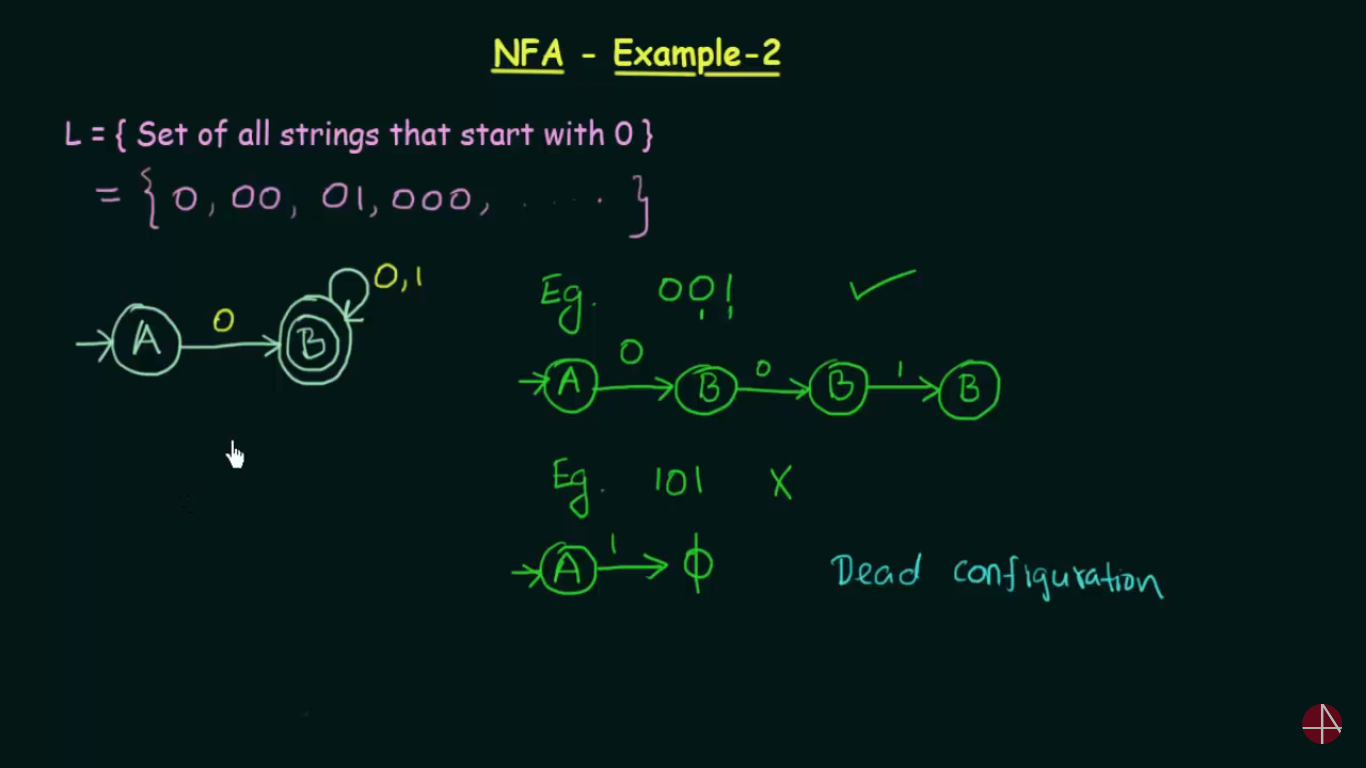 NFA - Example-2
L = { Set of all strings that start with 0 }
= { 0, 00, 01, 000, ..... }
0,1
0
A
B
Eg. 001 ✓
0 0 1
A B B B
Eg. 101 X
1
A ϕ
Dead configuration